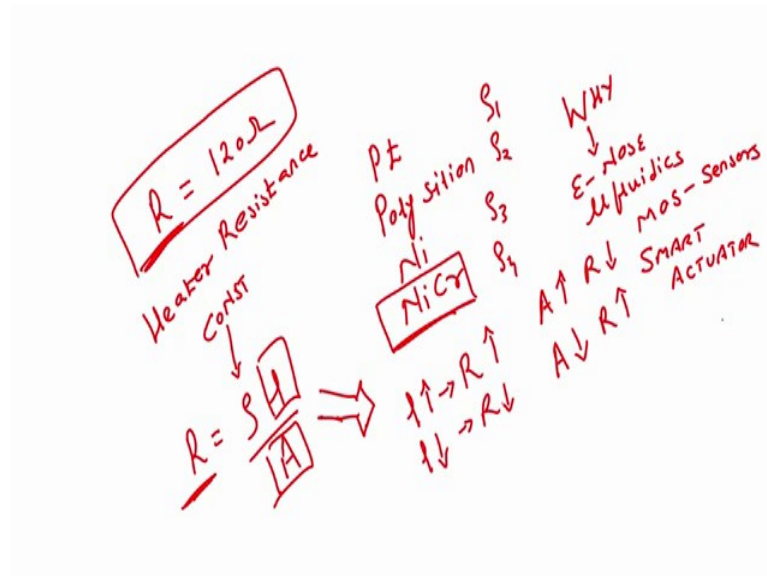 R = 120Ω
Heater Resistance
CONST
R = ρ l / A
Pt ρ1
Poly silion ρ2
Ni ρ3
NiCr ρ4
l↑ → R↑
l↓ → R↓
A↑ R↓
A↓ R↑
WHY
↓
E-NOSE
μfluidics
MOS-Sensors
SMART
ACTUATOR